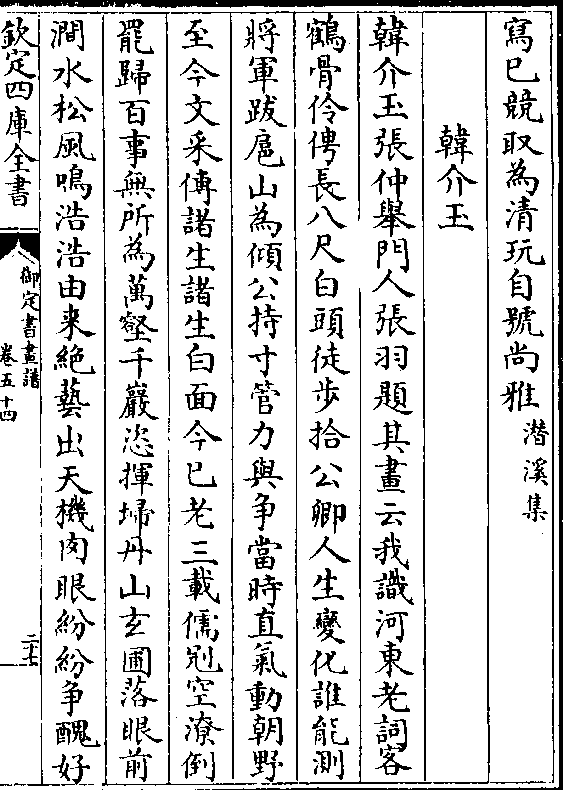 寫已競取為清玩自號尚雅潛溪集
韓介玉
韓介玉張仲舉門人張羽題其畫云我識河東老詞客
鶴骨伶俜長八尺白頭徒步拾公卿人生變化誰能測
將軍跋扈山為傾公持寸管力與争當時直氣動朝野
至今文采傳諸生諸生白面今已老三載儒冠空潦倒
罷歸百事無所為萬壑千巖恣揮埽丹山玄圃落眼前
澗水松風鳴浩浩由来絶藝出天機肉眼紛紛争醜好
欽定四庫全書
御定書畫譜
卷五十四
二十七